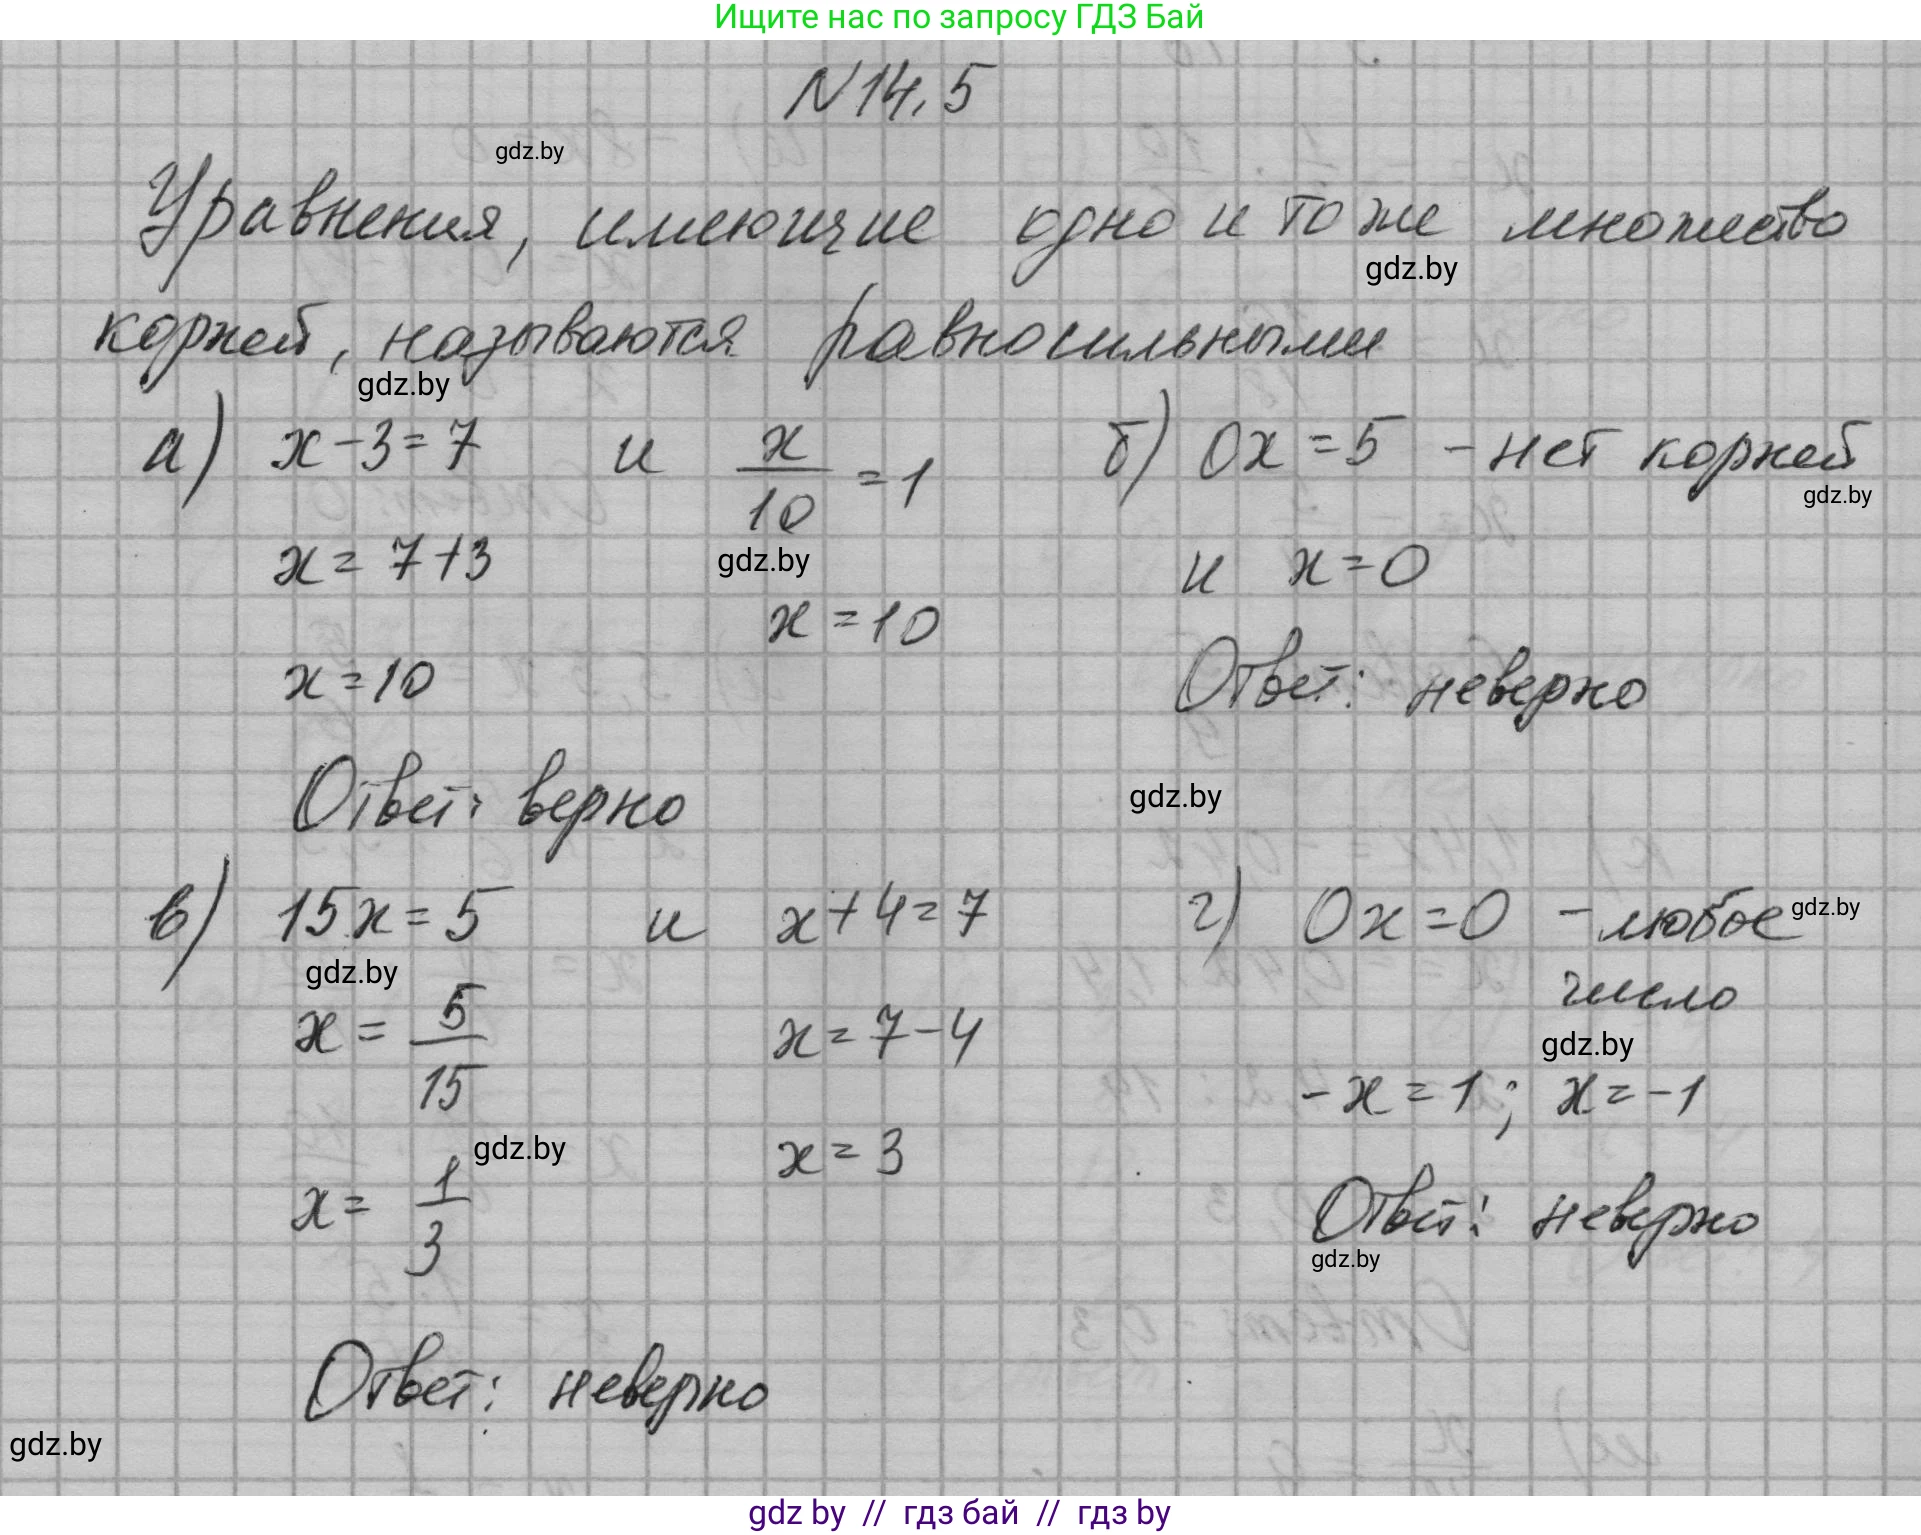 Ищите нас по запросу ГДЗ Бай
N14.5
gdz.by
Уравнения, имеющие одно и то же множество
gdz.by
корней, называются равносильными
gdz.by
а) x-3=7 и x/10 =1
x= 7+3
gdz.by
x=10
x=10
Ответ: верно
б) 0x=5 - нет корней
gdz.by
и x=0
Ответ: неверно
gdz.by
в) 15x=5 и x+4=7
gdz.by
x= 5/15
x=7-4
gdz.by
x= 1/3
x=3
Ответ: неверно
г) 0x=0 - любое
gdz.by
число
gdz.by
-x=1; x=-1
Ответ: неверно
gdz.by
gdz.by
gdz by // гдз бай // гдз by